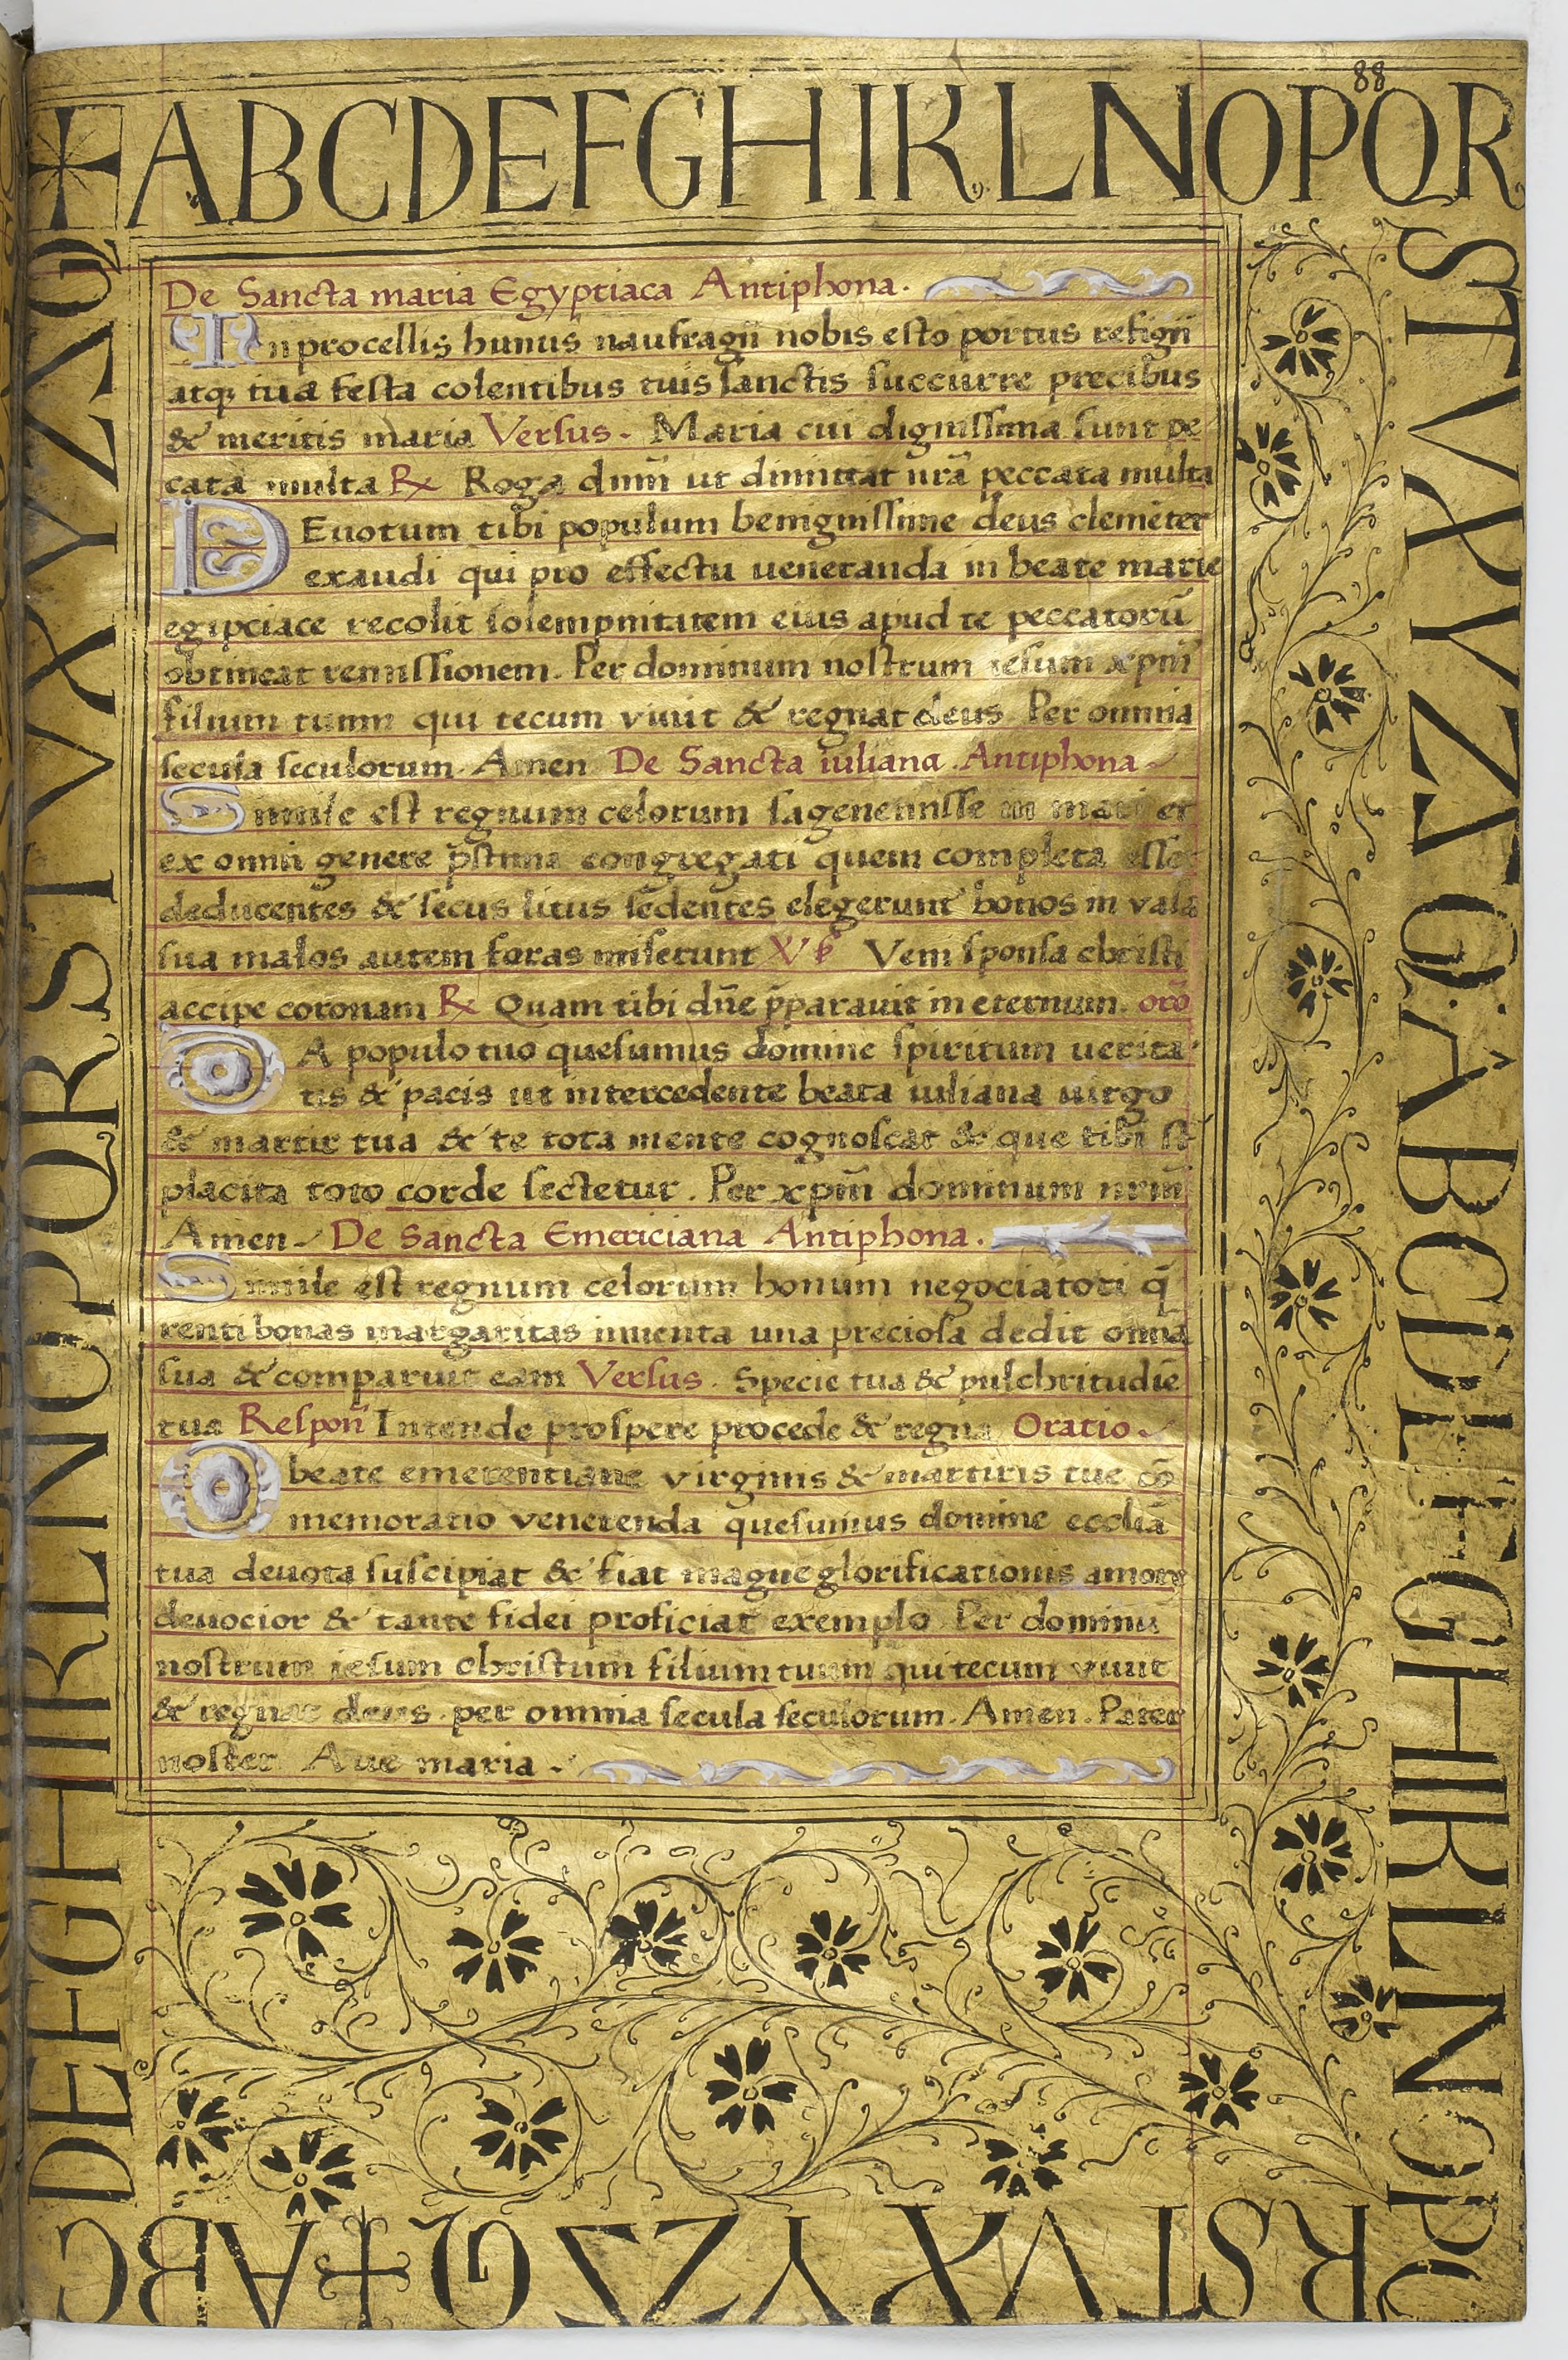 88
ABCDEFGHIKLNOPQR
De Sancta maria Egyptiaca Antiphona.
In procellis hunus naufragii nobis esto portus refigii
atq; tua festa colentibus tuis sanctis succurre precibus
& meritis maria Versus. Maria cui dignissima sunt pe
cata multa R Roga dnm̄ ut dimittat nrā peccata multa
DEuotum tibi populum benignissime deus clemēter
exaudi qui pro effectu ueneranda in beate marie
egipciace recolit solempnitatem eius apud te peccatorū
obtineat remissionem. Per dominum nostrum iesum xpm̄
filium tuum qui tecum viuit & regnat deus Per omnia
secula seculorum. Amen De Sancta iuliana. Antiphona
Simile est regnum celorum sagene misse in mari et
ex omni genere congregati quem completa esset
deducentes & secus litus sedentes elegerunt bonos in vasa
sua malos autem foras miserunt Vs Veni sponsa christi
accipe coronam R Quam tibi dn̄e p̄parauit in eternum. orō
DA populo tuo quesumus domine spiritum uerita
tis & pacis ut intercedente beata iuliana uirgo
& martir tua & te tota mente cognoscat & que tibi st̄
placita toto corde sectetur. Per xpm̄ dominum nrm̄
Amen De Sancta Emericiana Antiphona.
Simile est regnum celorum honum negociatori q̄
renti bonas margaritas inuenta una preciosa dedit omnia
sua & comparuit eam Versus. Specie tua & pulchritudiē
tua Respon̄ Intende prospere procede & regna Oratio.
O beate emerentiane virginis & martiris tue cō
memoratio venerenda quesumus domine eccliā
tua deuota suscipiat & fiat magne glorificationis amore
deuocior & tante fidei proficiat exemplo Per dominū
nostrum iesum christum filium tuum qui tecum viuit
& regnat deus. per omnia secula seculorum. Amen. Pater
noster Aue maria
STVXYZ ABCDEFGHIKLNOP
QRSTVXYZ ABC
DEFGHIKLNOPQRSTVXYZ